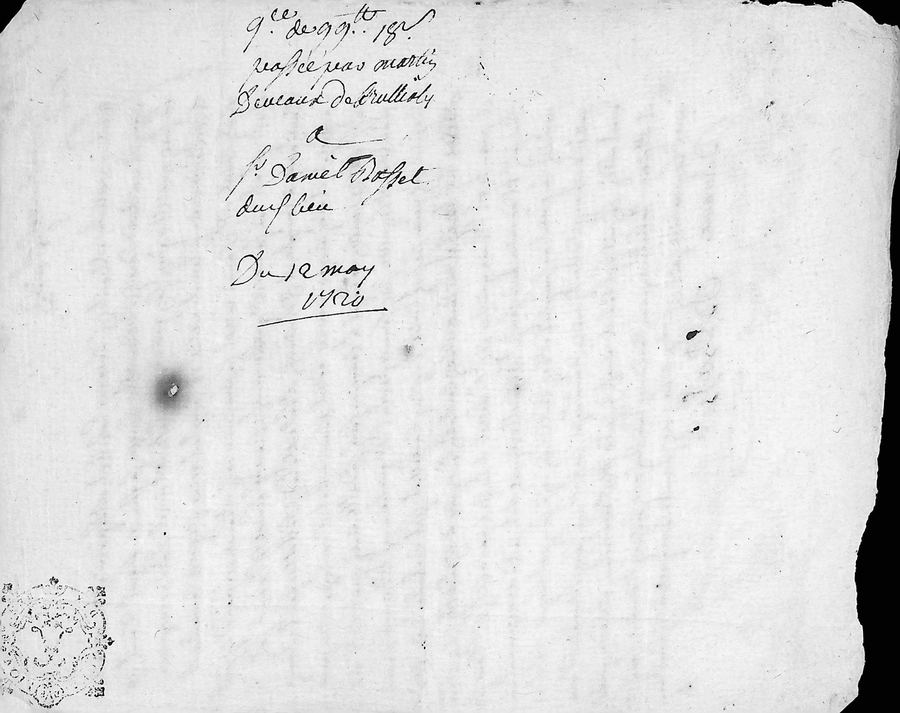 qce de 99tt 18s
passée par martin
Deveaux de
a
sr Daniel Rosset
dud lieu
Du 12 may
1720